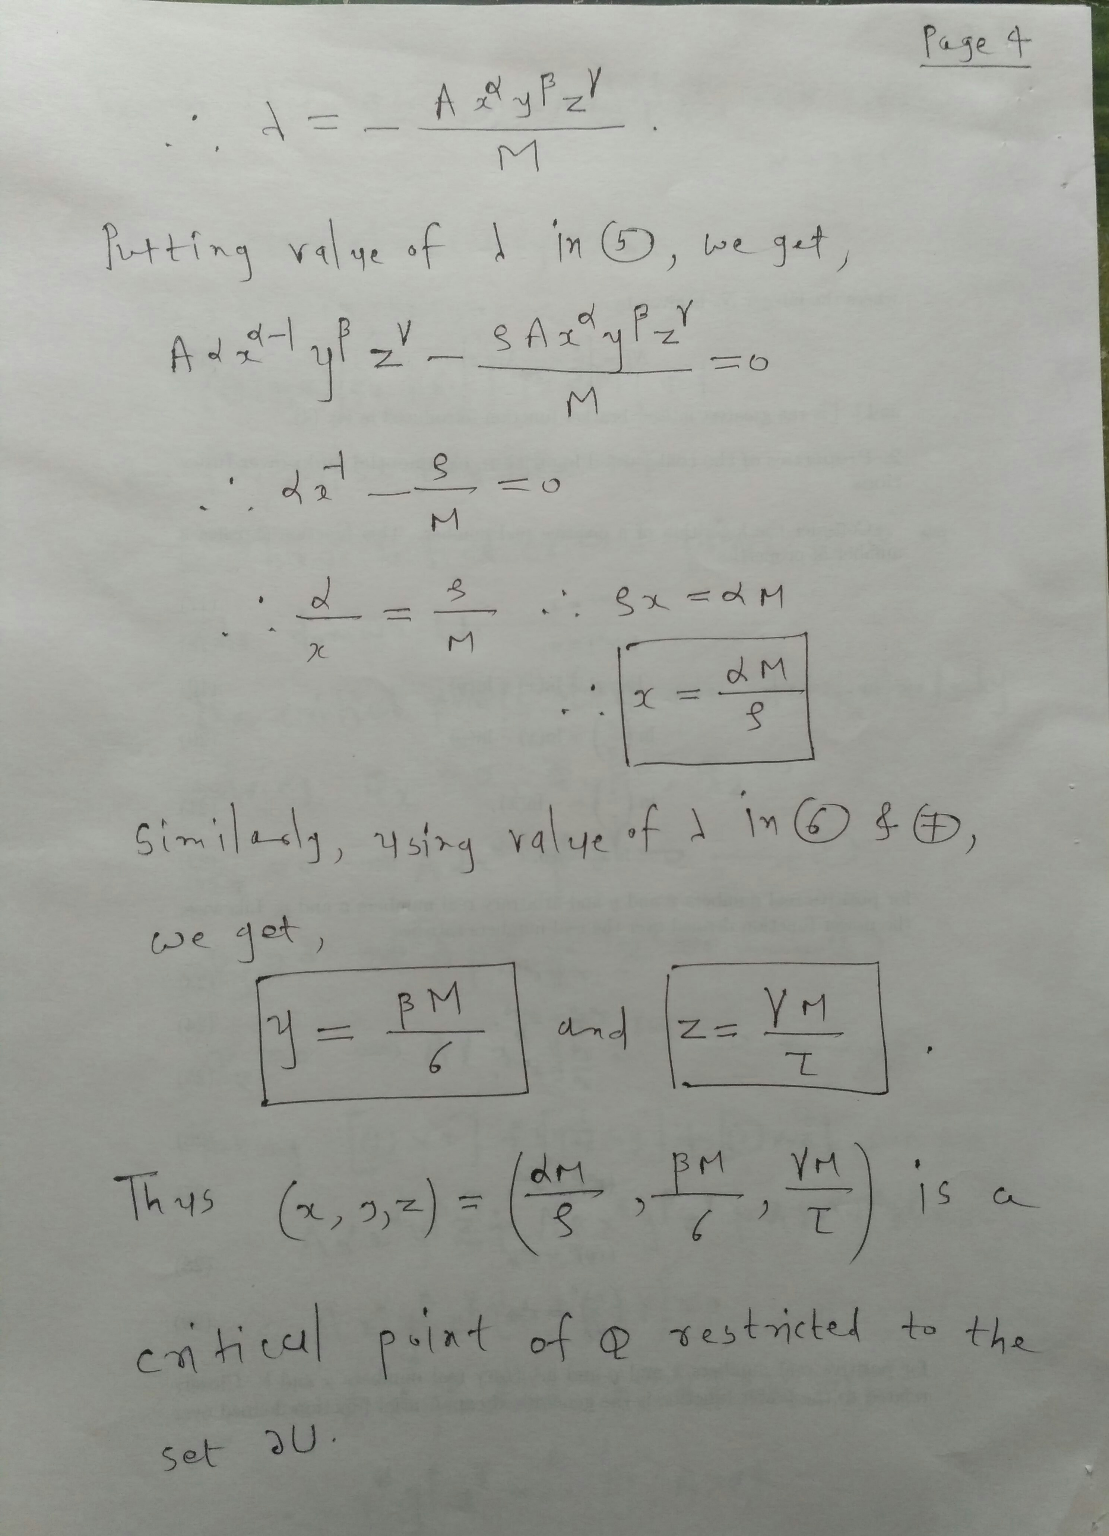 Page 4
∴ λ = − A x^α y^β z^γ / M .
Putting value of λ in ⑤, we get,
A α x^(α-1) y^β z^γ − ρ A x^α y^β z^γ / M = 0
∴ α x^-1 − ρ / M = 0
∴ α / x = ρ / M ∴ ρx = αM
∴ x = αM / ρ
Similarly, using value of λ in ⑥ & ⑦,
we get,
y = βM / σ and z = γM / τ .
Thus (x, y, z) = (αM / ρ , βM / σ , γM / τ) is a
critical point of Q restricted to the
set ∂U.